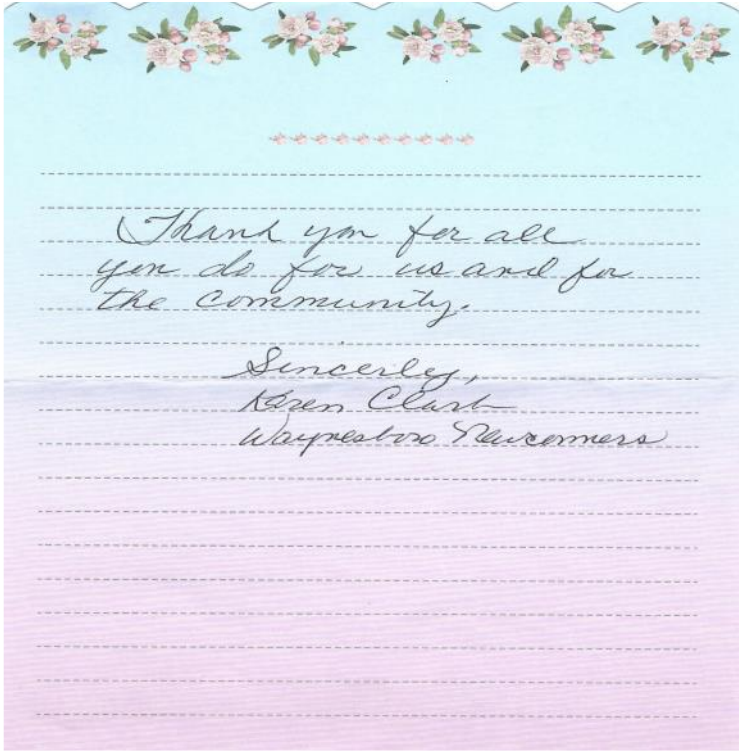 Thank you for all
you do for us and for
the community.
Sincerley,
Karen Clark
Waynesboro Newcommers